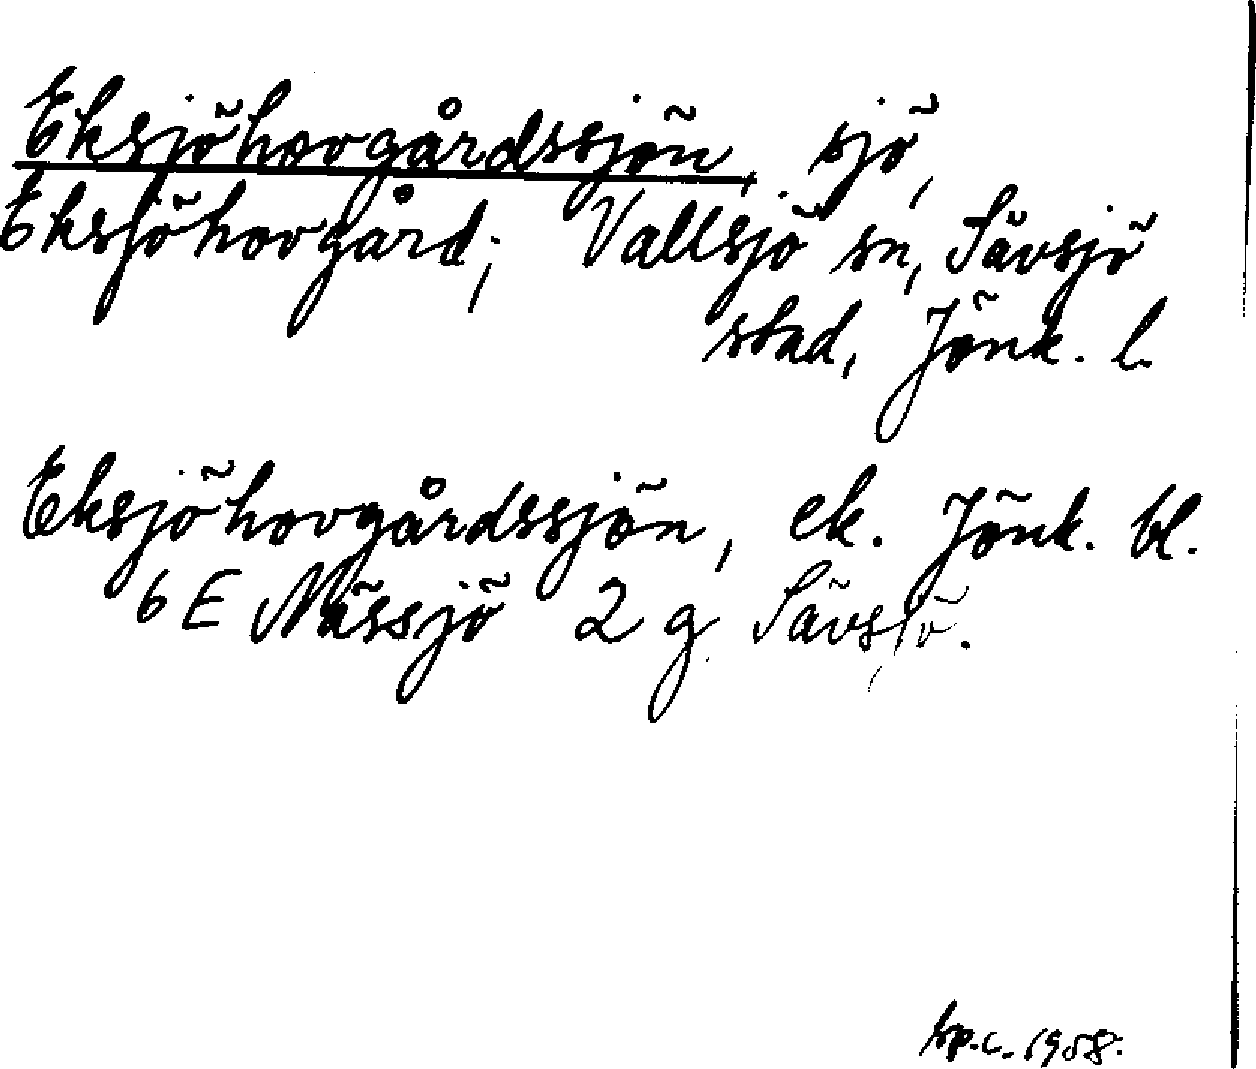 Eksjöhovgårdssjön, sjö,
Eksjöhovgård; Vallsjö sn, Sävsjö
stad, Jönk. l.
Eksjöhovgårdssjön, ek. Jönk. bl.
6 E Nässjö 2 g Sävsjö.
sp.c. 1958.